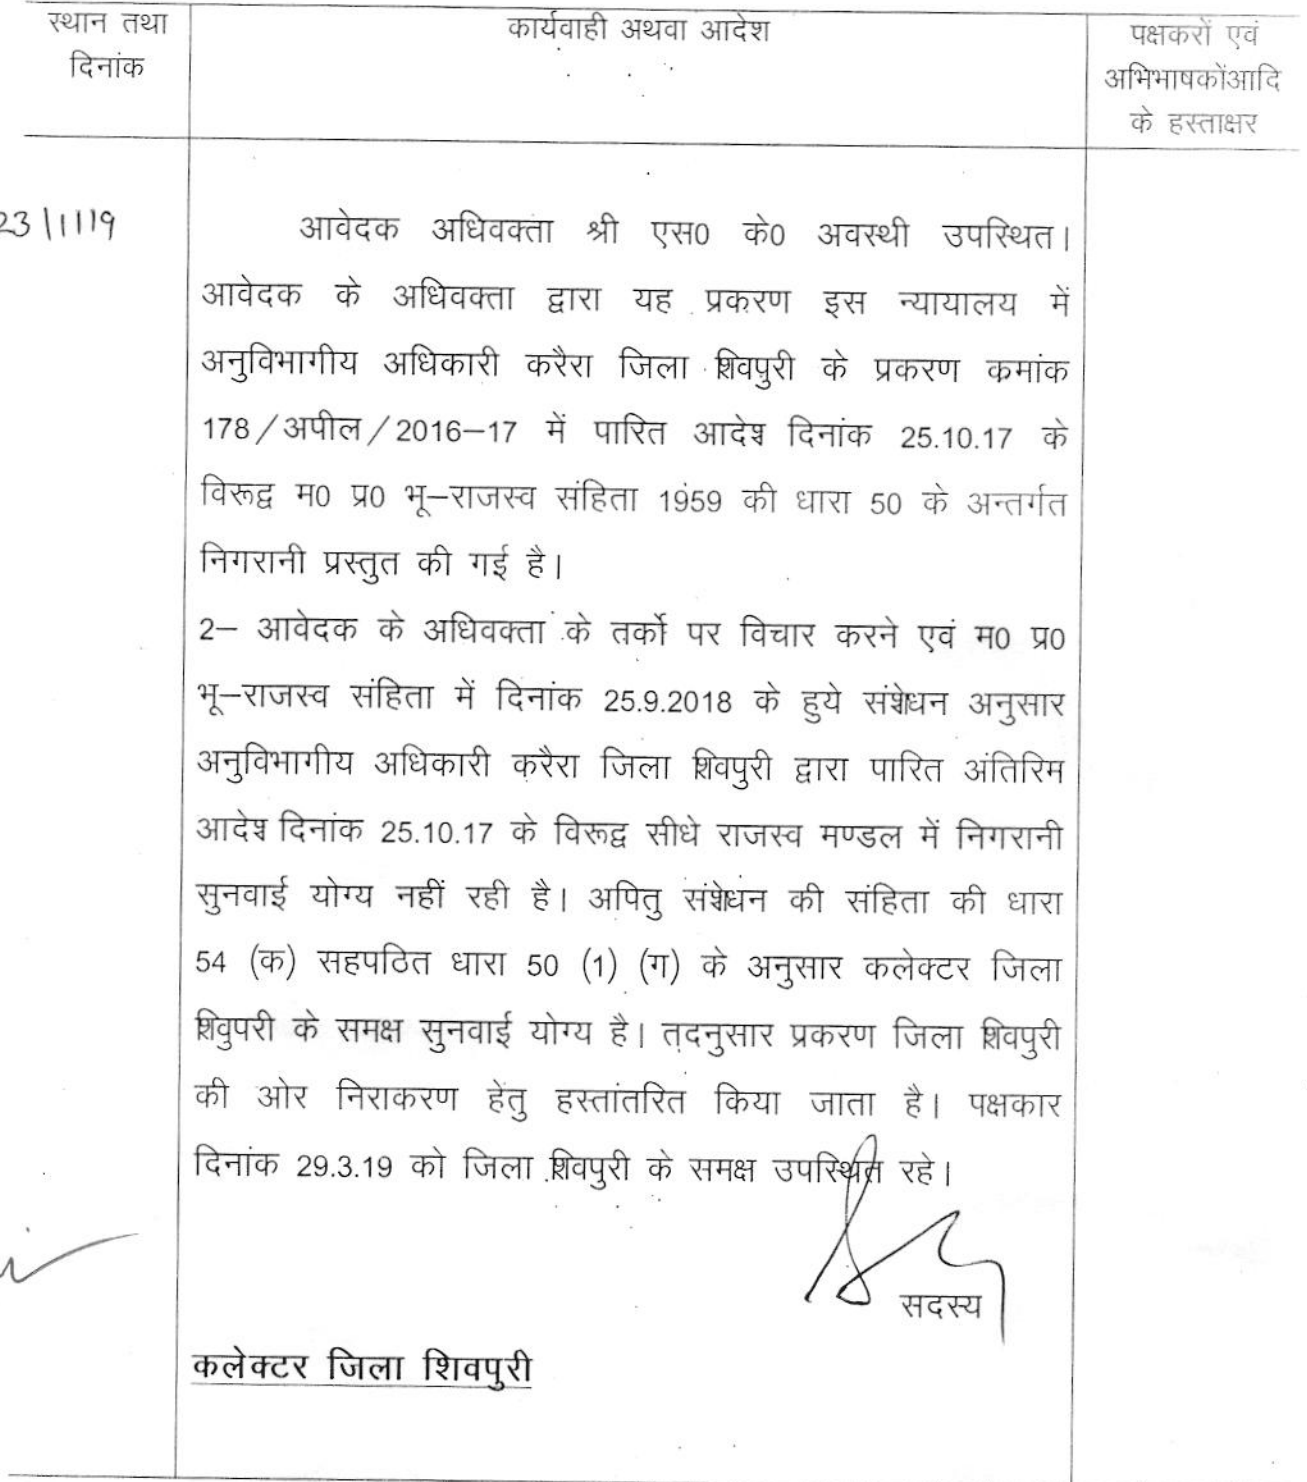 स्थान तथा
दिनांक
कार्यवाही अथवा आदेश
पक्षकरों एवं
अभिभाषकोंआदि
के हस्ताक्षर
23|1|19
आवेदक अधिवक्ता श्री एस0 के0 अवस्थी उपस्थित।
आवेदक के अधिवक्ता द्वारा यह प्रकरण इस न्यायालय में
अनुविभागीय अधिकारी करैरा जिला शिवपुरी के प्रकरण कमांक
178/अपील/2016–17 में पारित आदेश दिनांक 25.10.17 के
विरूद्व म0 प्र0 भू–राजस्व संहिता 1959 की धारा 50 के अन्तर्गत
निगरानी प्रस्तुत की गई है।
2– आवेदक के अधिवक्ता के तर्को पर विचार करने एवं म0 प्र0
भू–राजस्व संहिता में दिनांक 25.9.2018 के हुये संशेधन अनुसार
अनुविभागीय अधिकारी करैरा जिला शिवपुरी द्वारा पारित अंतिरिम
आदेश दिनांक 25.10.17 के विरूद्व सीधे राजस्व मण्डल में निगरानी
सुनवाई योग्य नहीं रही है। अपितु संशेधन की संहिता की धारा
54 (क) सहपठित धारा 50 (1) (ग) के अनुसार कलेक्टर जिला
शिवुपरी के समक्ष सुनवाई योग्य है। तदनुसार प्रकरण जिला शिवपुरी
की ओर निराकरण हेतु हस्तांतरित किया जाता है। पक्षकार
दिनांक 29.3.19 को जिला शिवपुरी के समक्ष उपस्थित रहे।
सदस्य
कलेक्टर जिला शिवपुरी